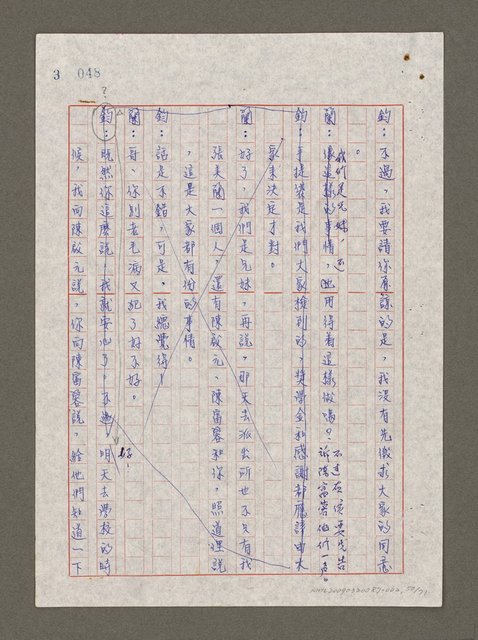 3 048
鈞：不過，我要請你原諒的是，我沒有先徵求大家的同意
。
我們是兄妹，還
蘭：像這樣的事情，也用得着這樣做嗎？
不過否須要先告
訴陳富蓉他們一聲。
鈞：手提袋是我們大家撿到的，獎學金和感謝都應該由大
家來決定才對。
蘭：好了，我們是兄妹，再說，那天去派出所也不只有我
張美蘭一個人，還有陳啟元、陳富蓉和你，照道理說
，這是大家都有份的事情。
鈞：話是不錯，可是，我總覺得！
蘭：哥、你別老毛病又犯了好不好。
？
好！
鈞：既然你這麼說，我就安心了。不過，明天去學校的時
候，我向陳啟元說，你向陳富蓉說，給他們知道一下